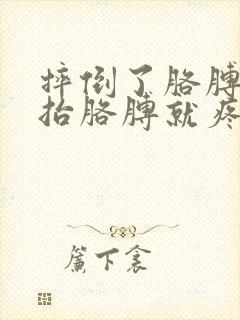 摔倒了胳膊
抬胳膊就疼
簾下衾